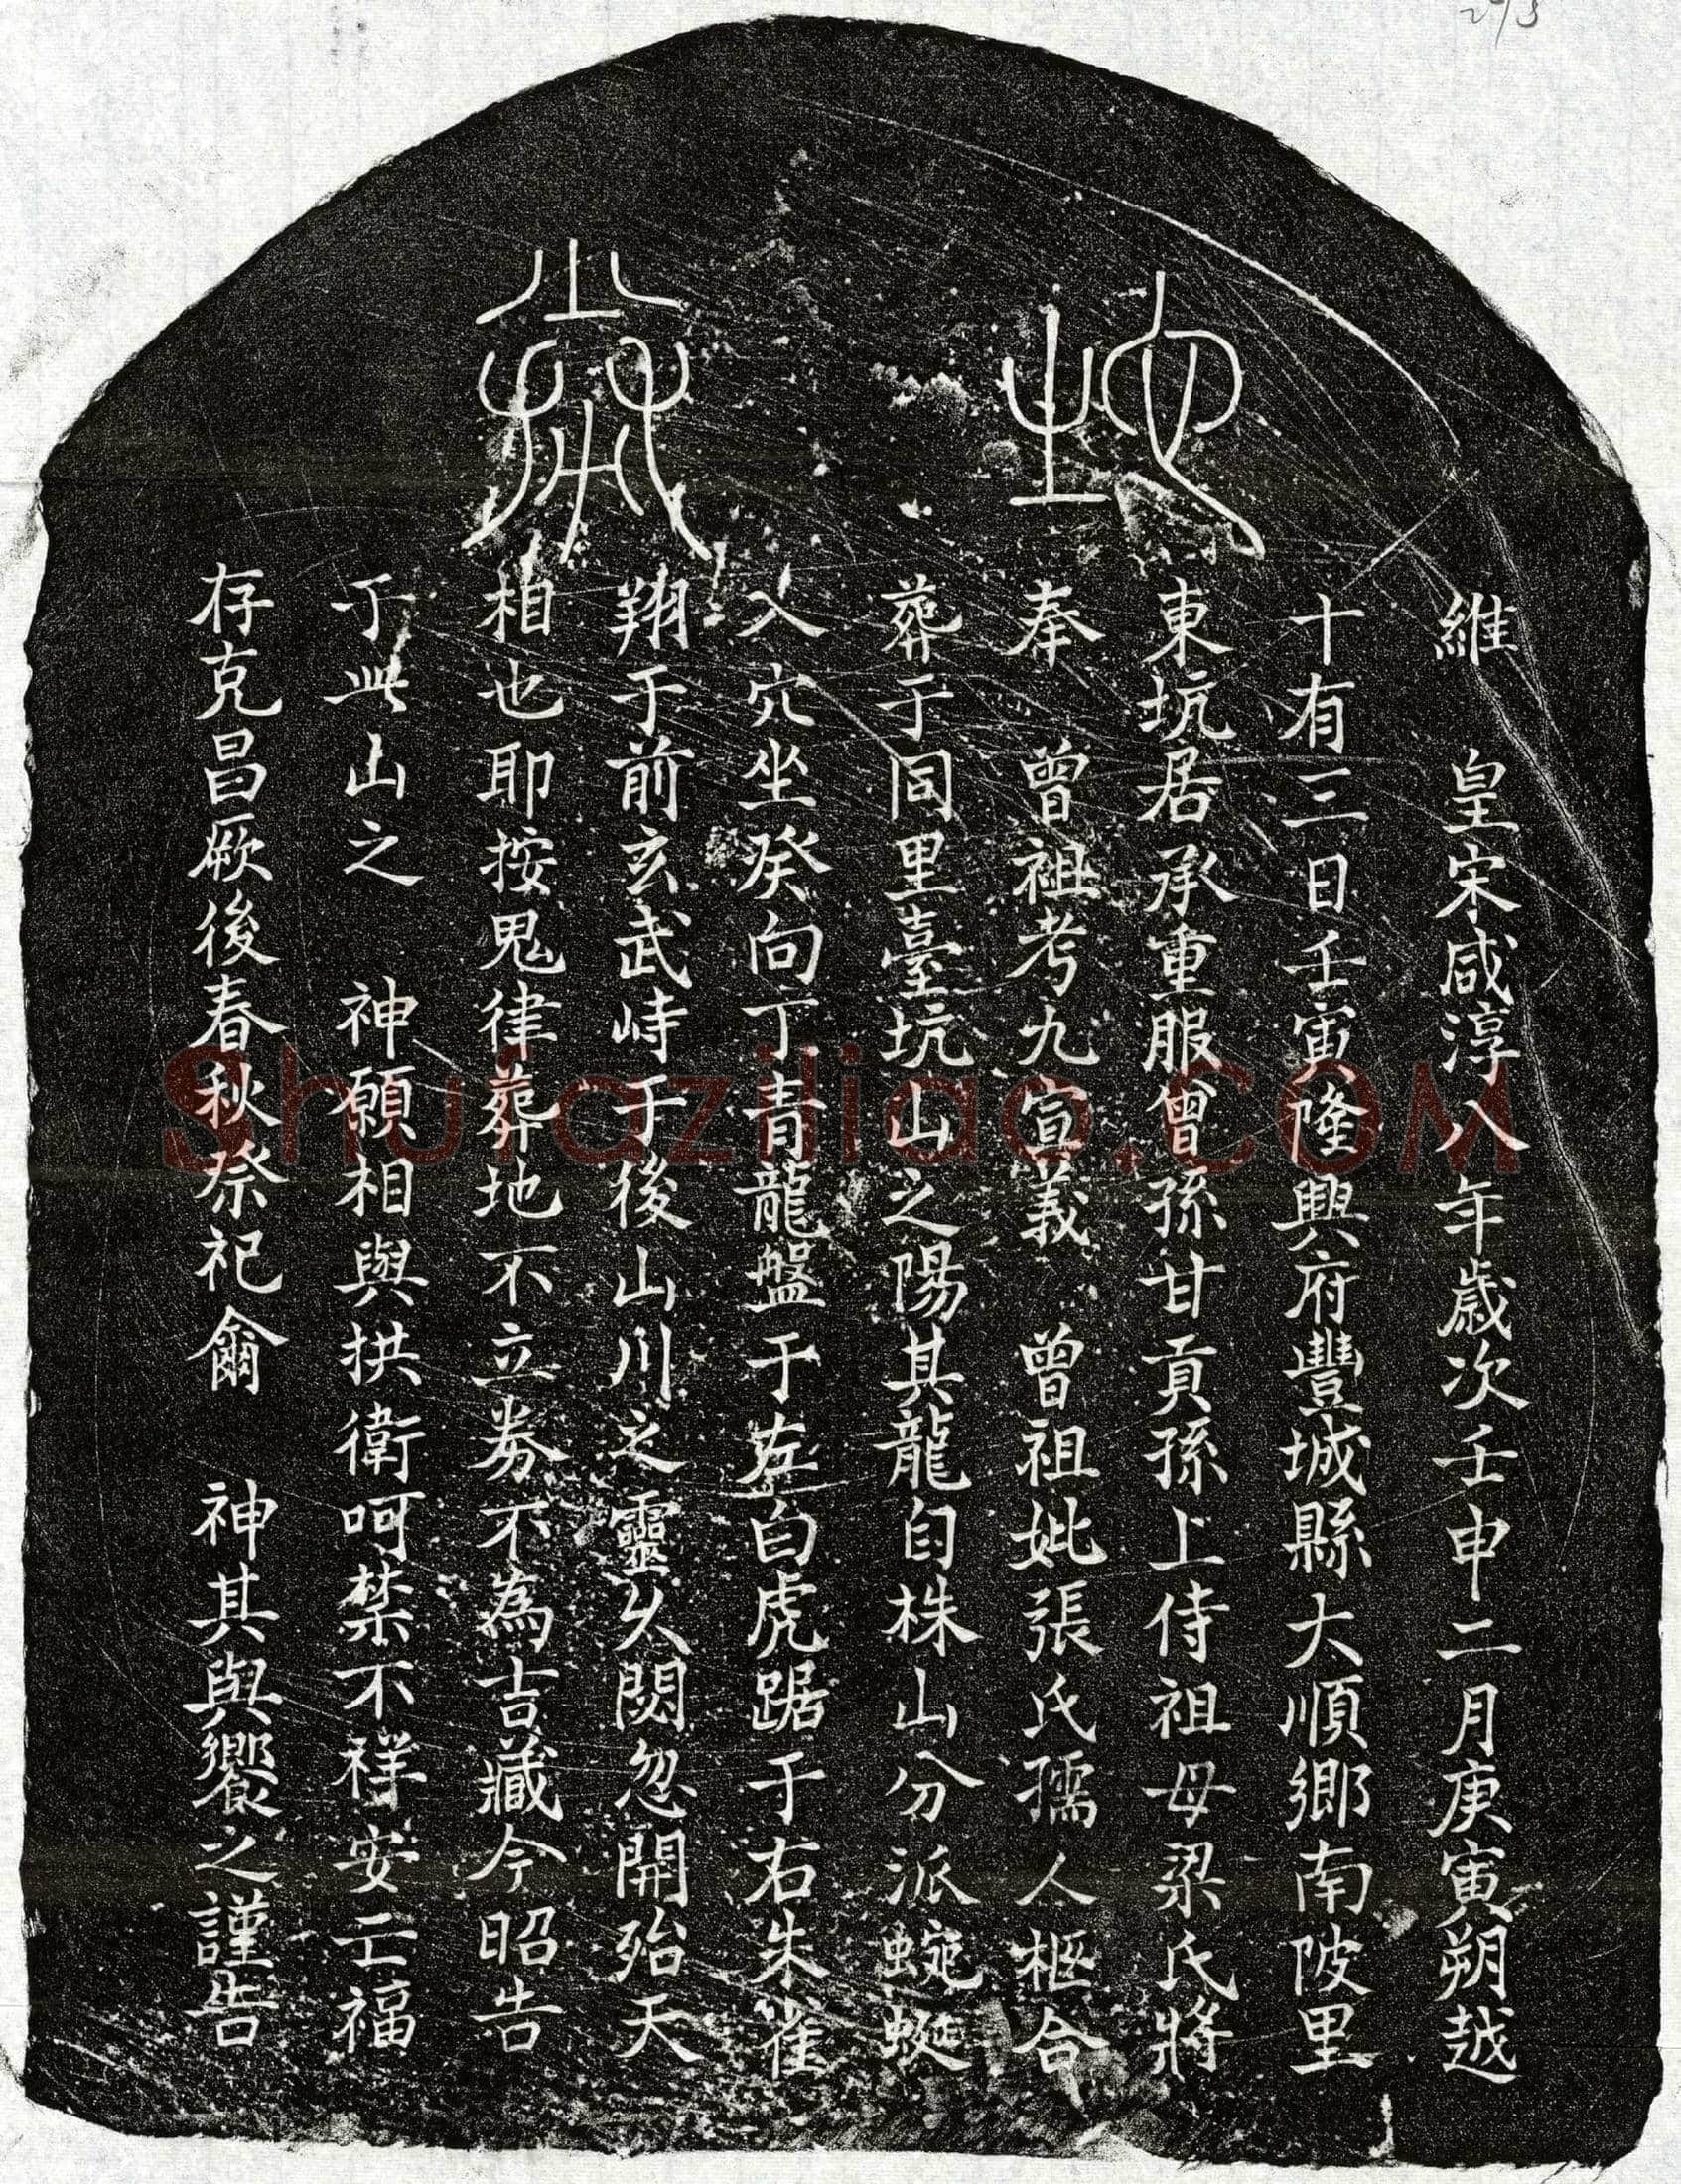 地券
維　皇宋咸淳八年歲次壬申二月庚寅朔越
十有三日壬寅隆興府豐城縣大順鄉南陂里
東坑居承重服曾孫甘貢孫上侍祖母梁氏將
奉　曾祖考九宣義　曾祖妣張氏孺人柩合
葬于同里臺坑山之陽其龍自株山分派蜿蜒
入穴坐癸向丁青龍盤于左白虎踞于右朱雀
翔于前玄武峙于後山川之靈久閟忽開殆天
相也耶按鬼律葬地不立券不為吉藏今昭告
于此山之　神願相與拱衛呵禁不祥安亡福
存克昌厥後春秋祭祀爾　神其與饗之謹告
Shufaziliao.COM